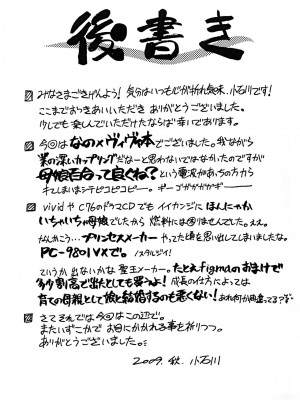 後書き
みなさまごきげんよう! 気分はいつも心が折れ気味、小石川です!
ここまでおつきあいいただき ありがとうございました。
少しでも楽しんでいただけたならば 幸いであります。
今回はなのは×ヴィヴィ本でございました。我ながら
業の深いカップリングだなーと思わないではなかったのですが
母娘百合って良くね?という電波があちらの方から
vividやC76のドラマCDでも イイカンジにほんにゃか
いちゃいちゃ母娘でしたから 燃料には困りませんでした。ええ。
なんかこう…プリンセスメーカー やってた頃を思い出してしまいましたな。
PC-9801VXで。
というか 出ないかな 聖王メーカー。たとえfigmaのおまけで
多少割高で出たとしても買うよ! 成長の仕方によっては
育ての母親として彼と結婚するのも悪くない! あれ何か間違ってる??
さてそれでは今回はこの辺で。
またいずこかで お目にかかれる事を祈りつつ。
ありがとうございました。
2009.秋. 小石川